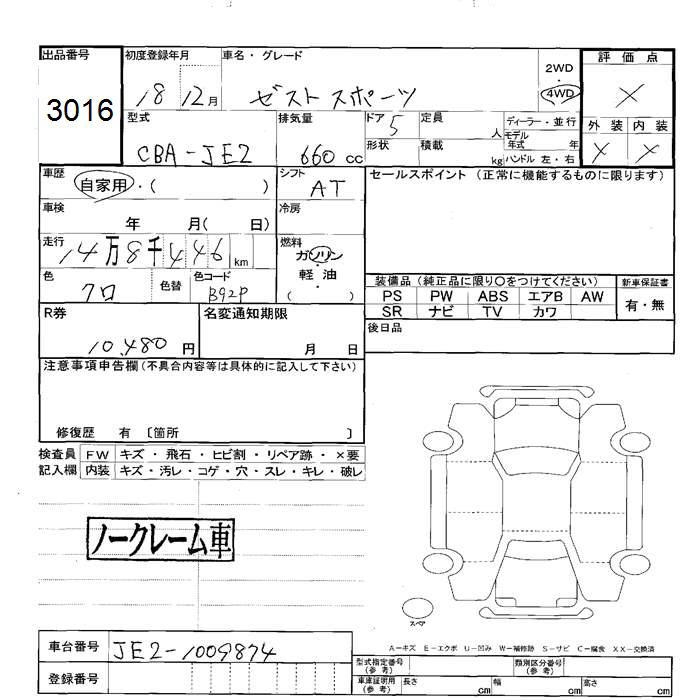 出品番号 初度登録年月 車名・グレード 評価点
3016 18 12月 ゼスト スポーツ 2WD 4WD ×
型式 排気量 ドア 定員 ディーラー・並行 外装 内装
CBA-JE2 660 cc 5 人 モデル年式 年 × ×
形状 積載 kg ハンドル 左・右
車歴 自家用・( ) シフト AT セールスポイント (正常に機能するものに限ります)
車検 年 月( 日) 冷房
走行 14万8千446 km 燃料 ガソリン・軽油 ( )
色 クロ 色替 色コード B92P
装備品 (純正品に限り○をつけてください) 新車保証書
PS PW ABS エアB AW 有・無
SR ナビ TV カワ
R券 10,480 円 名変通知期限 月 日 後日品
注意事項申告欄 (不具合内容等は具体的に記入して下さい)
修復歴 有 〔箇所 〕
検査員 FW キズ・飛石・ヒビ割・リペア跡・×要
記入欄 内装 キズ・汚レ・コゲ・穴・スレ・キレ・破レ
ノークレーム車
スペア
A-キズ E-エクボ U-凹み W-補修跡 S-サビ C-腐食 XX-交換済
車台番号 JE2-1009874
登録番号
型式指定番号 (参考) 類別区分番号 (参考)
車庫証明用 (参考) 長さ cm 幅 cm 高さ cm